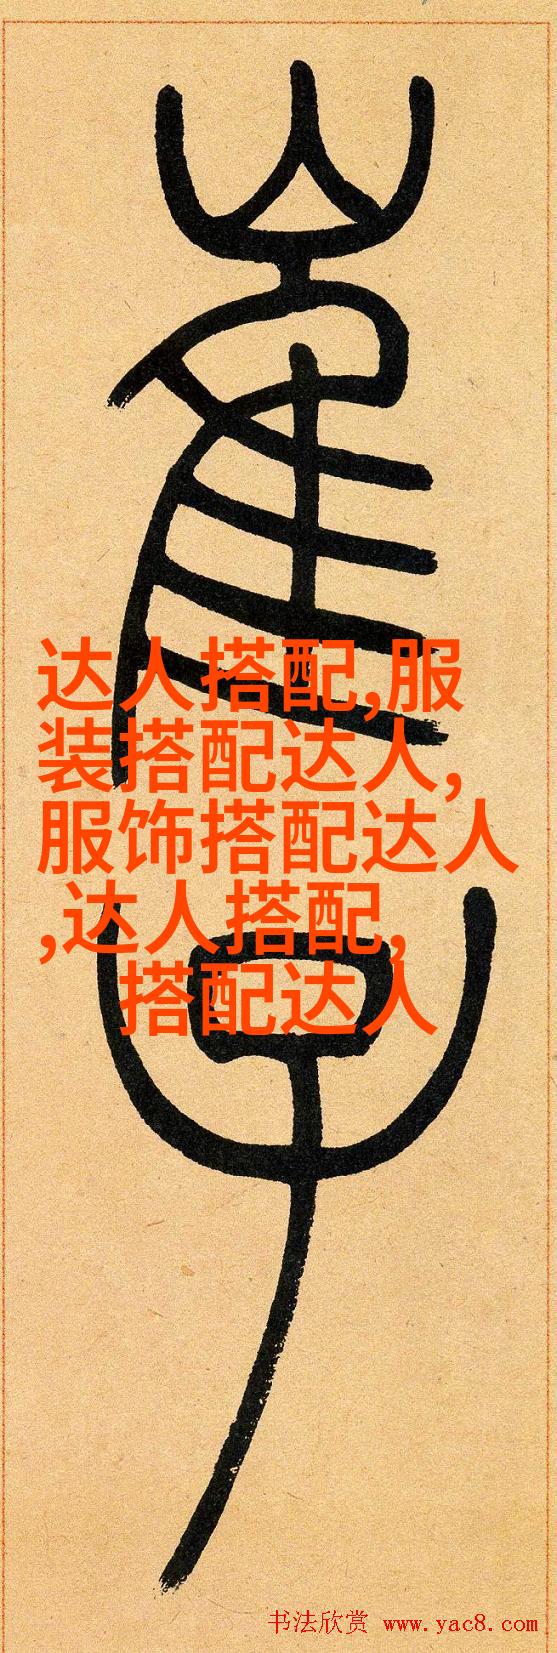 崔子
达人搭配,服
装搭配达人,
服饰搭配达人
,达人搭配,
搭配达人
书法欣赏 www.yac8.com